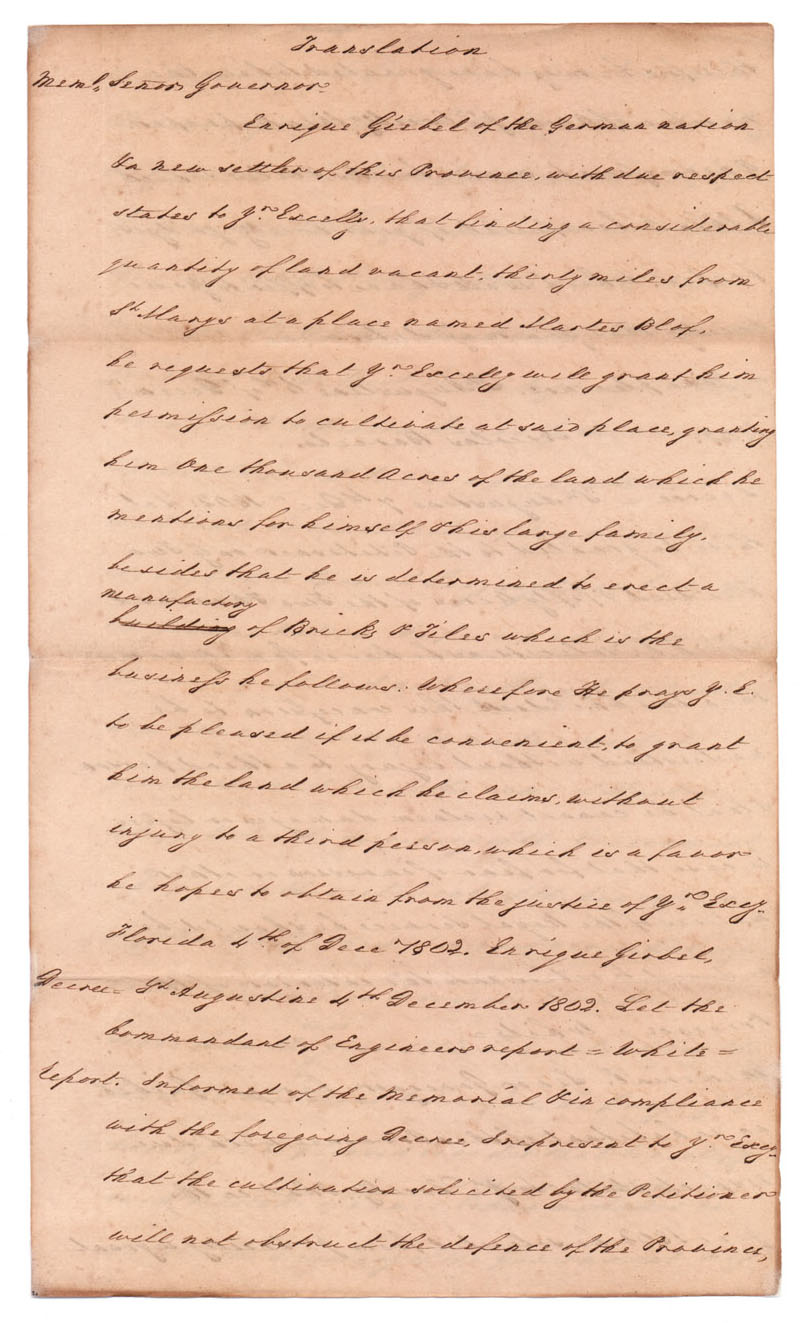 Translation
Meml, Señor Governor
Enrique Giebel of the German nation
& a new settler of this Province, with due respect
states to Yr. Excelly, that finding a considerable
quantity of land vacant, thirty miles from
St. Marys at a place named Martes Blof,
he requests that Yr. Excelly will grant him
permission to cultivate at said place, granting
him One thousand Acres of the land which he
mentions for himself & his large family,
besides that he is determined to erect a
manufactory
building of Bricks & Tiles which is the
business he follows: Wherefore He prays Y. E.
to be pleased if it be convenient, to grant
him the land which he claims, without
injury to a third person, which is a favor
he hopes to obtain from the justice of Yr. Excy.
Florida 4th of Decer 1802. Enrique Girbel,
Decree = St Augustine 4th December 1802. Let the
Commandant of Engineers report = White =
Report. Informed of the Memorial & in compliance
with the foregoing Decree, I represent to Yr. Excy-
that the cultivation solicited by the Petitioner
will not obstruct the defence of the Province,